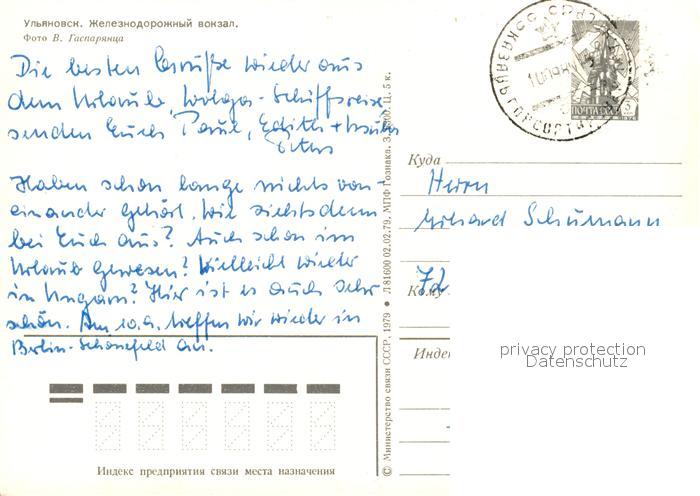 Ульяновск. Железнодорожный вокзал.
Фото В. Гаспарянца
Die besten Grüße wieder aus
dem Urlaub, Wolga-Schiffsreise
senden Euch Paul, Edith +
Haben schon lange nichts von-
einander gehört. Wie siehts denn
bei Euch aus? Auch schon im
Urlaub gewesen? Vielleicht wieder
in Ungarn? Hier ist es auch sehr
schön. Am 10.9. treffen wir wieder in
Berlin-Schönefeld an.
Индекс предприятия связи места назначения
© Министерство связи СССР, 1979 ● Л 81600 02.02.79. МПФ Гознака. З. Ц. 5 к.
Куда
Herrn
Schumann
72
Кому
Индек
privacy protection
Datenschutz